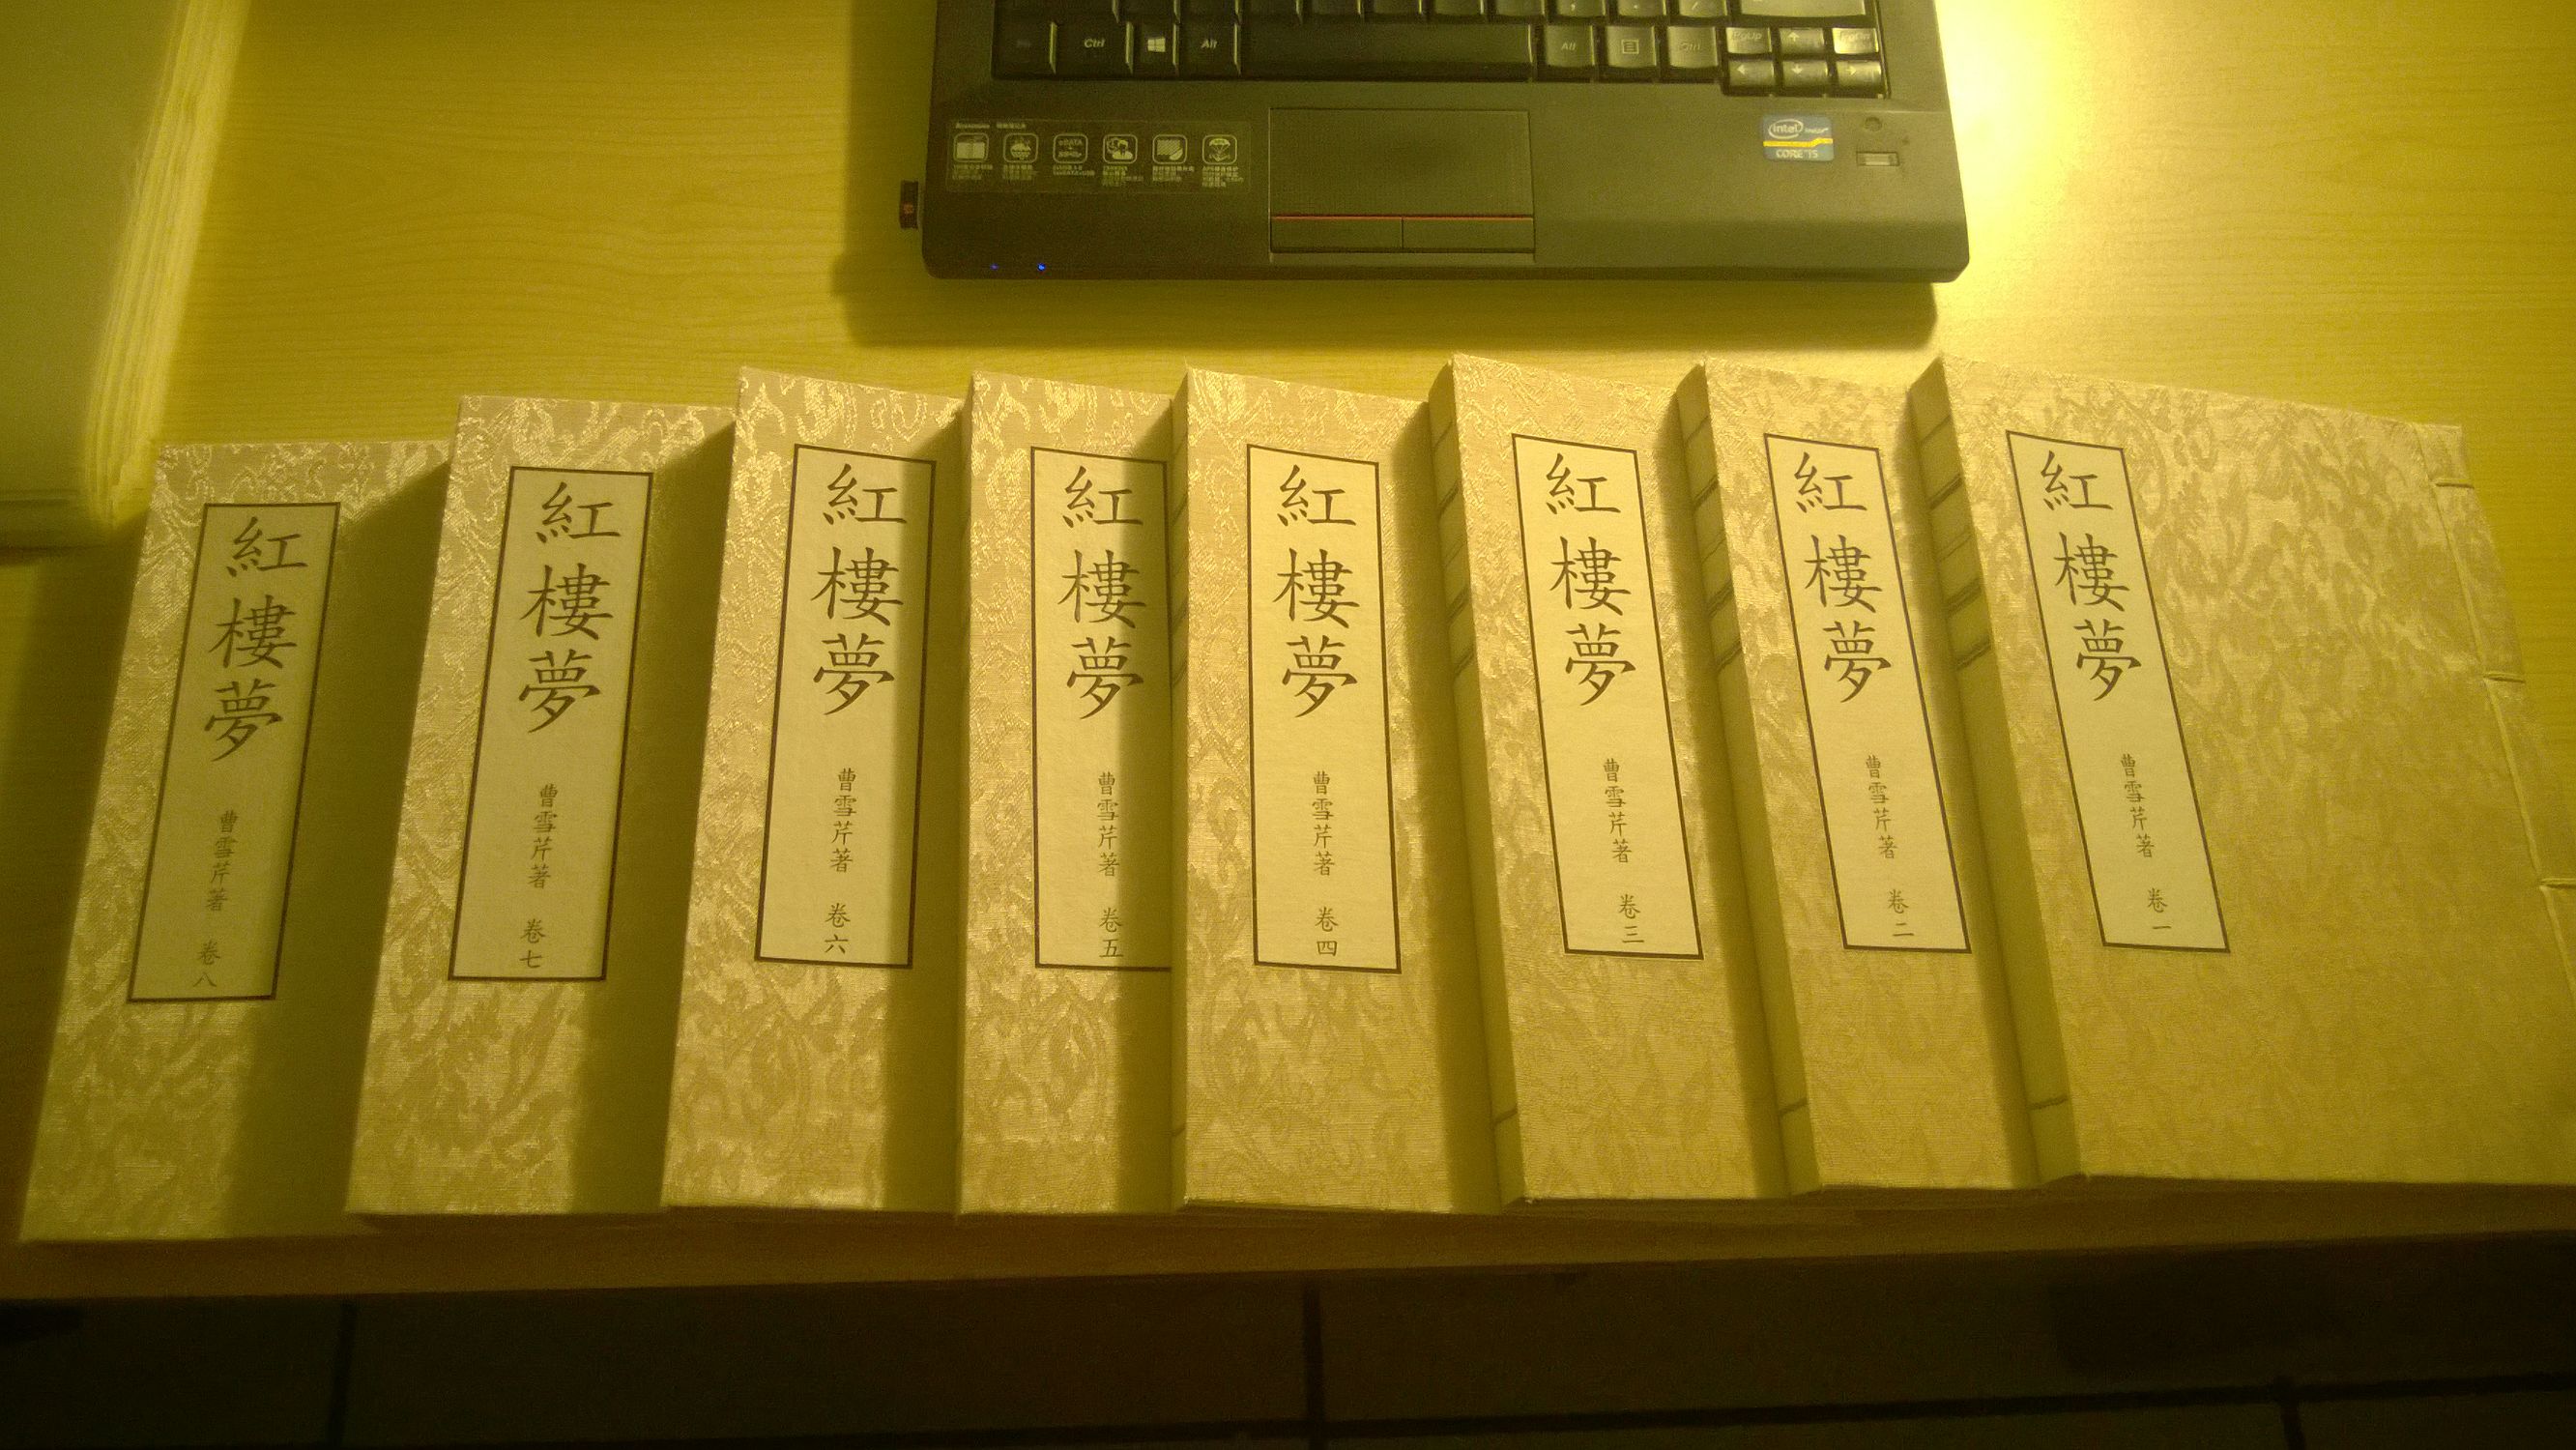 Ctrl
Alt
Alt
Ctrl
PgUp
PgDn
intel
CORE i5
紅樓夢
曹雪芹著
卷一
紅樓夢
曹雪芹著
卷二
紅樓夢
曹雪芹著
卷三
紅樓夢
曹雪芹著
卷四
紅樓夢
曹雪芹著
卷五
紅樓夢
曹雪芹著
卷六
紅樓夢
曹雪芹著
卷七
紅樓夢
曹雪芹著
卷八